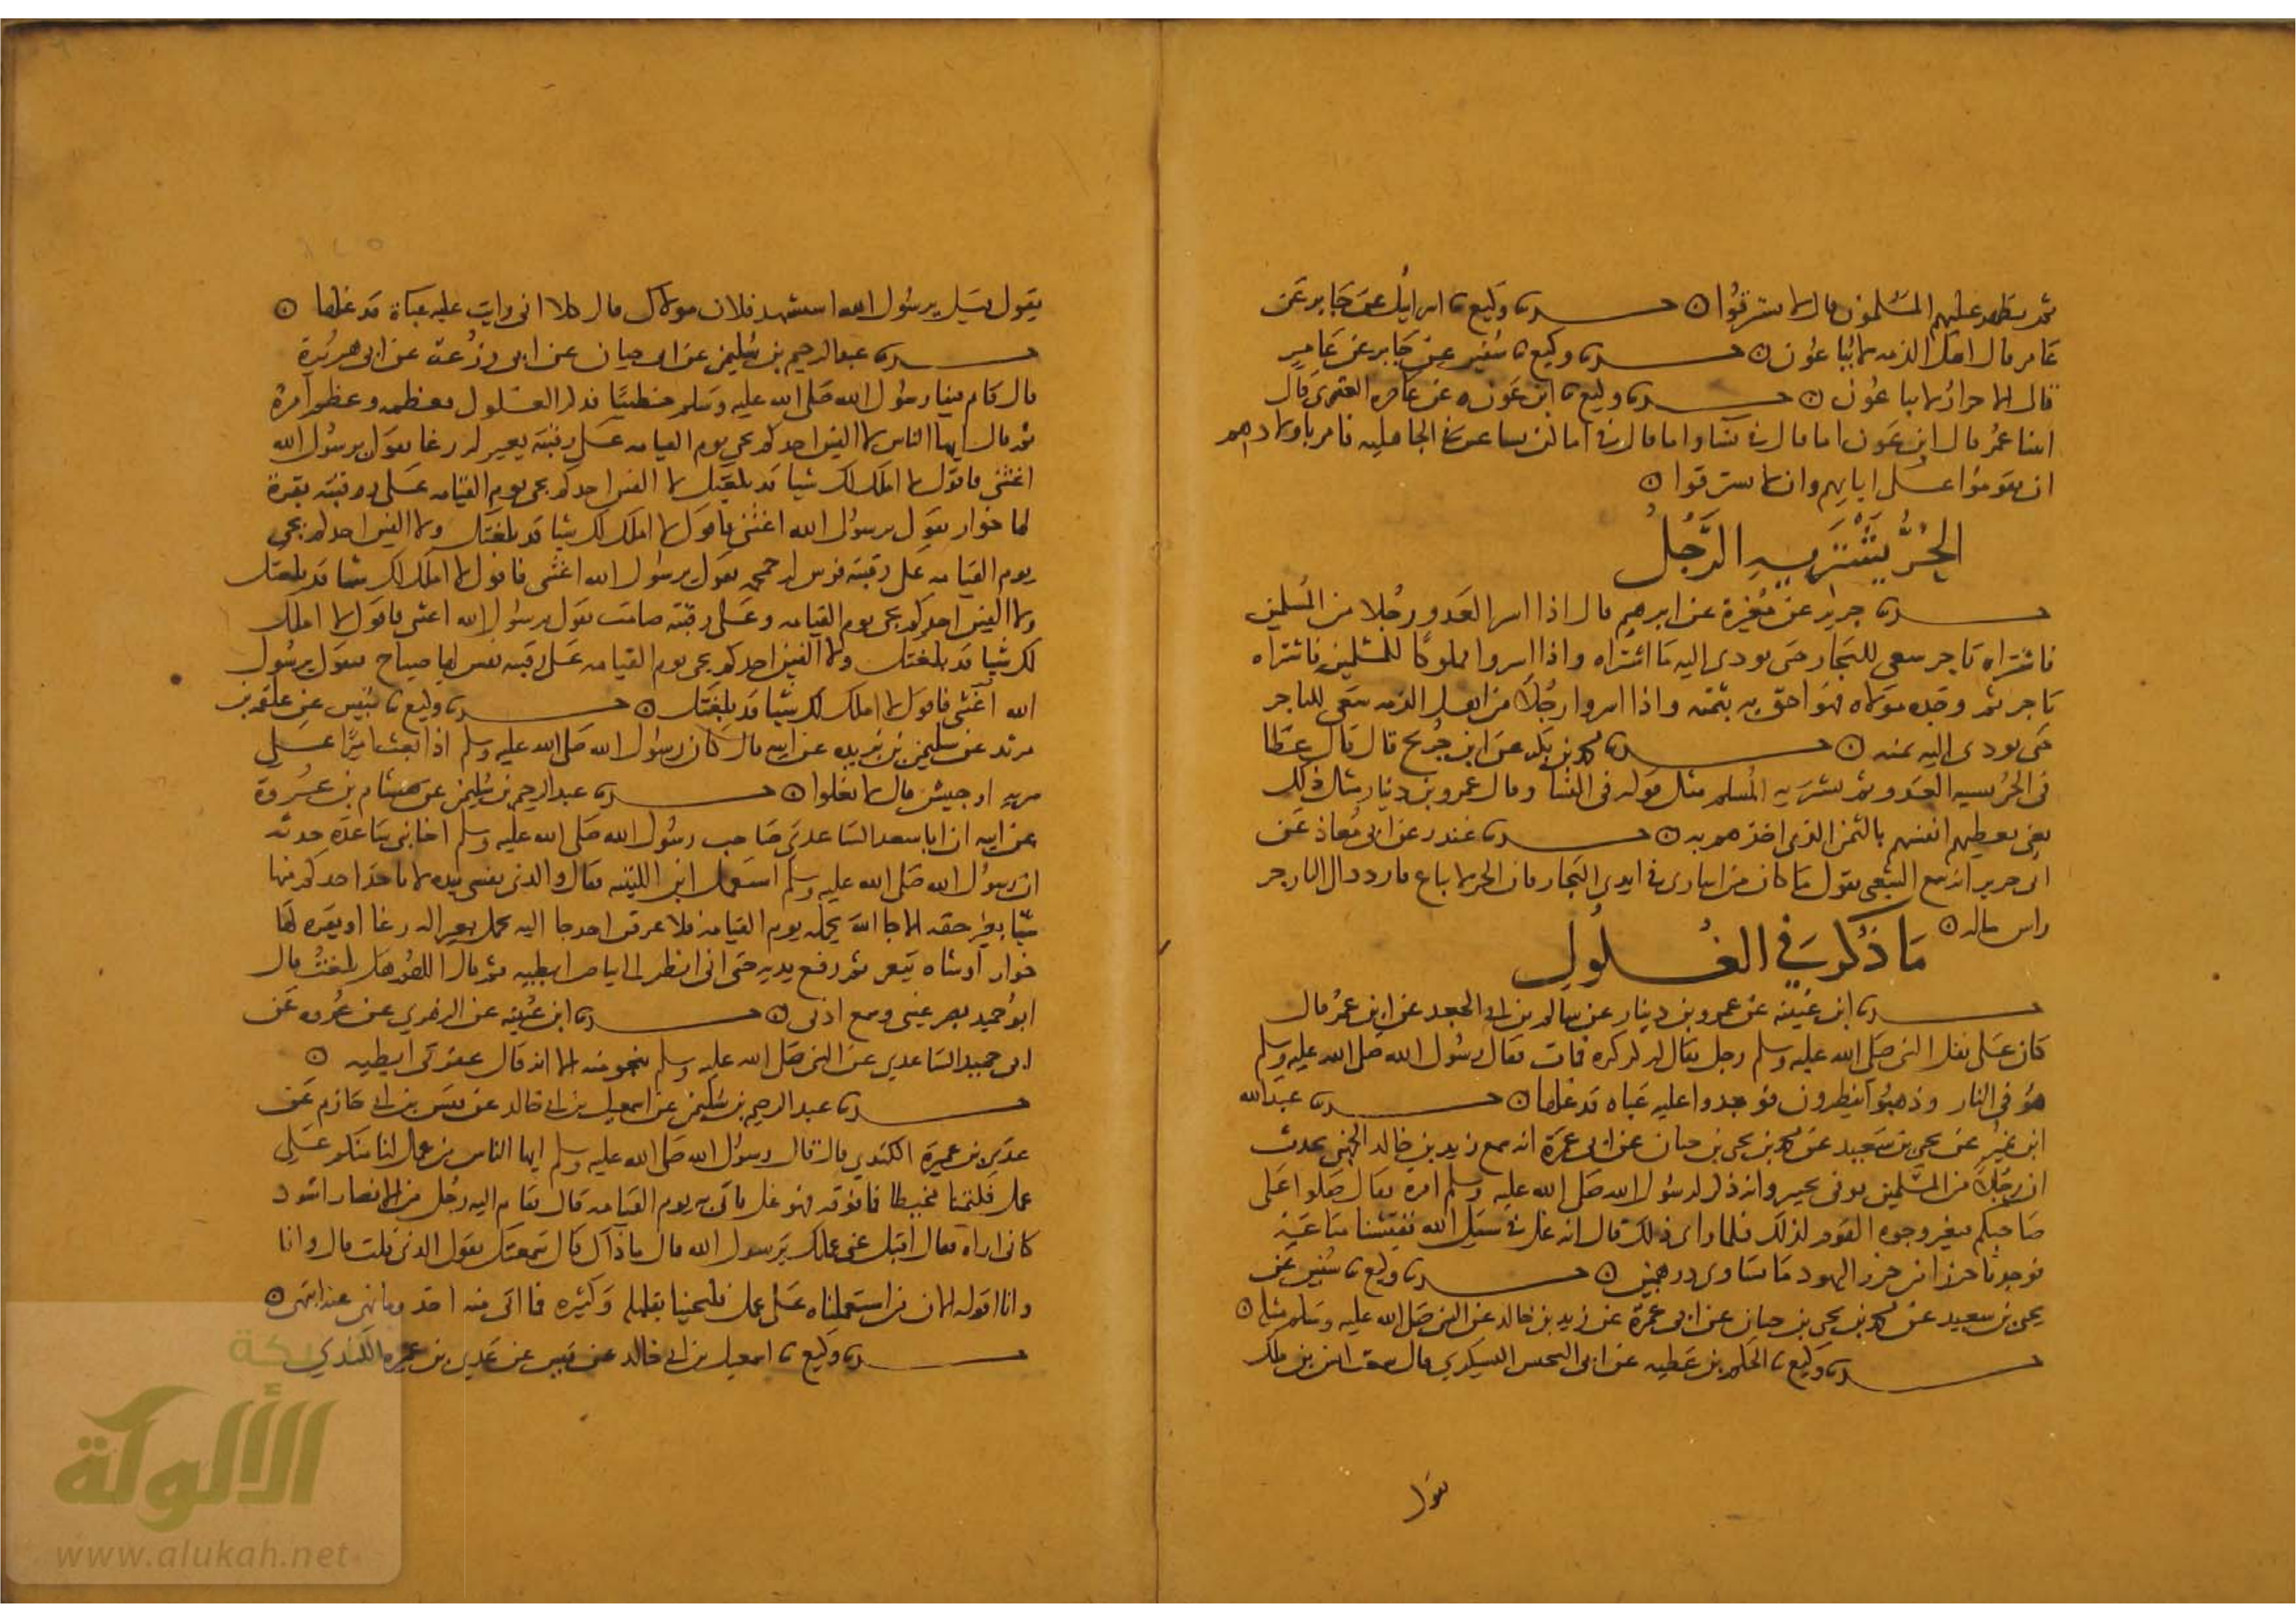 ثم يظهر عليهم المسلمون قال لا يسترقوا ⊙ حدثنا وكيع نا اسرايل عن جابر عن
عامر قال اهل الذمه لا يباعون ⊙ حدثنا وكيع نا سفين عن جابر عن عامر
قال الاحرار لا يباعون ⊙ حدثنا وكيع نا ابن عون عن غاضره العنبري قال
اتينا عمر قال ابن عون اما قال في نسا واما قال في اما كن يساعين في الجاهليه فامر باولادهم
ان يقوموا على ابايهم وان لا يسترقوا ⊙
الحر يشتريه الرجل
حدثنا جرير عن مغيرة عن ابرهيم قال اذا اسر العدو رجلا من المسلمين
فاشتراه تاجر سعى للتجار حتى يودى اليه ما اشتراه واذا اسروا مملوكا للمسلمين فاشتراه
تاجر ثم وجده مولاه فهو احق به بثمنه واذا اسروا رجلا من اهل الذمه سعى للتاجر
حتى يودى اليه ثمنه ⊙ حدثنا محمد بن بكر عن ابن جريج قال قال عطا
في الحر يسبيه العدو ثم يشتريه المسلم مثل قوله في النسا وقال عمرو بن دينار مثل ذلك
يعنى يعطيهم انفسهم بالثمن الذى اخذهم به ⊙ حدثنا غندر عن ابى معاذ عن
ابى حرير انه سمع الشعبى يقول ما كان من اسارى في ايدى التجار فان الحر لا يباع فاردد الى التاجر
راس ماله ⊙
ما ذكر في الغلول
حدثنا ابن عيينه عن عمرو بن دينار عن سالم بن ابى الجعد عن ابن عمر قال
كان على نفل النبى صلى الله عليه وسلم رجل يقال له كركره فمات فقال رسول الله صلى الله عليه وسلم
هو في النار وذهبوا ينظرون فوجدوا عليه عباه قد غلها ⊙ حدثنا عبدالله
ابن نمير عن يحيى بن سعيد عن محمد بن يحيى بن حبان عن ابى عمرة انه سمع زيد بن خالد الجهنى يحدث
ان رجلا من المسلمين توفى بخيبر وانه ذكر لرسول الله صلى الله عليه وسلم امره فقال صلوا على
صاحبكم فتغير وجوه القوم لذلك فلما راى ذلك قال انه غل في سبيل الله ففتشنا متاعه
فوجدنا خرزا من خرز اليهود ما تساوى درهمين ⊙ حدثنا وكيع نا سفين عن
يحيى بن سعيد عن محمد بن يحيى بن حبان عن ابى عمرة عن زيد بن خالد عن النبى صلى الله عليه وسلم مثله ⊙
حدثنا وكيع نا الحكم بن عطيه عن ابى المخيس اليشكري قال سمعت انس بن ملك
يقول
يقول قيل يرسول الله استشهد فلان مولاك قال كلا انى رايت عليه عباة قد غلها ⊙
حدثنا عبدالرحيم بن سليمن عن ابى حيان عن ابى زرعة عن ابى هريرة
قال قام فينا رسول الله صلى الله عليه وسلم خطيبا فذكر الغلول فعظمه وعظم امره
ثم قال ايها الناس لا الفين احدكم يجى يوم القيامه على رقبته بعير له رغا يقول يرسول الله
اغثنى فاقول لا املك لك شيا قد بلغتك لا الفين احدكم يجى يوم القيامه على رقبته بقرة
لها خوار يقول يرسول الله اغثنى فاقول لا املك لك شيا قد بلغتك ولا الفين احدكم يجى
يوم القيامه على رقبته فرس له حمحمه يقول يرسول الله اغثنى فاقول لا املك لك شيا قد بلغتك
ولا الفين احدكم يجى يوم القيامه وعلى رقبته صامت يقول يرسول الله اغثنى فاقول لا املك
لك شيا قد بلغتك ولا الفين احدكم يجى يوم القيامه على رقبته نفس لها صياح فيقول يرسول
الله اغثنى فاقول لا املك لك شيا قد بلغتك ⊙ حدثنا وكيع نا سفين عن علقمه بن
مرثد عن سليمن بن بريده عن ابيه قال كان رسول الله صلى الله عليه وسلم اذا بعث اميرا على
سريه او جيش قال لا تغلوا ⊙ حدثنا عبد الرحيم بن سليمن عن هشام بن عروة
عن ابيه ان ابا سعد الساعدى صاحب رسول الله صلى الله عليه وسلم اخا بنى ساعدة حدثه
ان رسول الله صلى الله عليه وسلم استعمل ابن اللتبيه فقال والذى نفسى بيده لا ياخذ احدكم منها
شيا بغير حقه الا جا الله يحمله يوم القيامه فلا عرفن احد جا اليه يحمل بعير اله رغا او بقره لها
خوار او شاه تيعر ثم رفع يديه حتى انى انظر الى بياض ابطيه ثم قال اللهم هل بلغت قال
ابو حميد بصر عينى وسمع اذنى ⊙ حدثنا ابن عيينه عن الزهري عن عروه عن
ابى حميد الساعدي عن النبى صلى الله عليه وسلم بنحو منه الا انه قال عفرتى ابطيه ⊙
حدثنا عبد الرحيم بن سليمن عن اسمعيل بن ابى خالد عن قيس بن ابى حازم عن
عدى بن عميرة الكندي قال قال رسول الله صلى الله عليه وسلم ايها الناس من عمل لنا منكم على
عمل فكتمنا مخيطا فما فوقه فهو غل ياتى به يوم القيامه قال فقام اليه رجل من الانصار اسود
كانى اراه فقال اقبل عنى عملك يرسول الله قال ما ذاك قال سمعتك تقول الذى قلت قال وانا
وانا اقوله الان من استعملناه على عمل فليجئنا بقليله وكثيره فما اتى منه اخذ وما نهى عنه انتهى ⊙
حدثنا وكيع نا اسمعيل بن ابى خالد عن قيس عن عدى بن عميره الكندي
شبكة
الألوكة
www.alukah.net